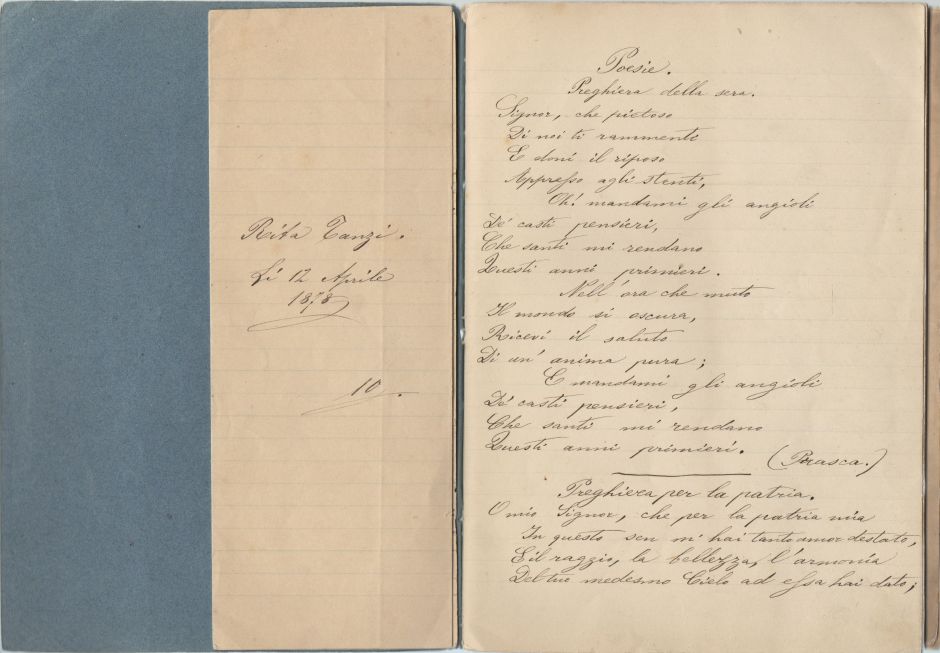 Rita Tanzi.
Li 12 Aprile
1878
10.
Poesie.
Preghiera della sera.
Signor, che pietoso
Di noi ti rammenti
E doni il riposo
Appresso agli stenti,
Oh! mandami gli angioli
De' casti pensieri,
Che santi mi rendano
Questi anni primieri.
Nell'ora che muto
Il mondo si oscura,
Ricevi il saluto
Di un' anima pura;
E mandami gli angioli
De' casti pensieri,
Che santi mi rendano
Questi anni primieri.
(Parasca.)
Preghiera per la patria.
O mio Signor, che per la patria mia
In questo sen m'hai tanto amor destato,
E il raggio, la bellezza, l'armonia
Del tuo medesmo Cielo ad essa hai dato;